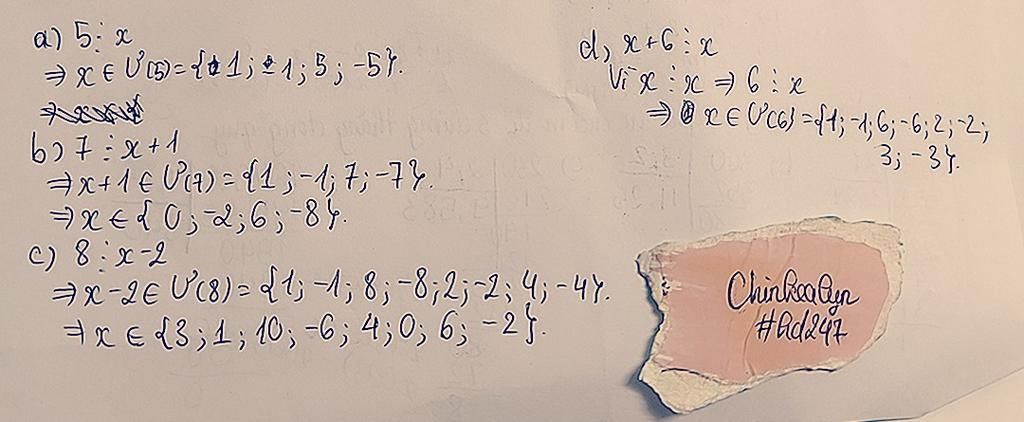 a) 5 ⋮ x
⇒ x ∈ Ư(5) = {1; -1; 5; -5}.
b) 7 ⋮ x+1
⇒ x+1 ∈ Ư(7) = {1; -1; 7; -7}.
⇒ x ∈ {0; -2; 6; -8}.
c) 8 ⋮ x-2
⇒ x-2 ∈ Ư(8) = {1; -1; 8; -8; 2; -2; 4; -4}.
⇒ x ∈ {3; 1; 10; -6; 4; 0; 6; -2}.
d, x+6 ⋮ x
Vì x ⋮ x ⇒ 6 ⋮ x
⇒ x ∈ Ư(6) = {1; -1; 6; -6; 2; -2;
3; -3}.
#Ad247